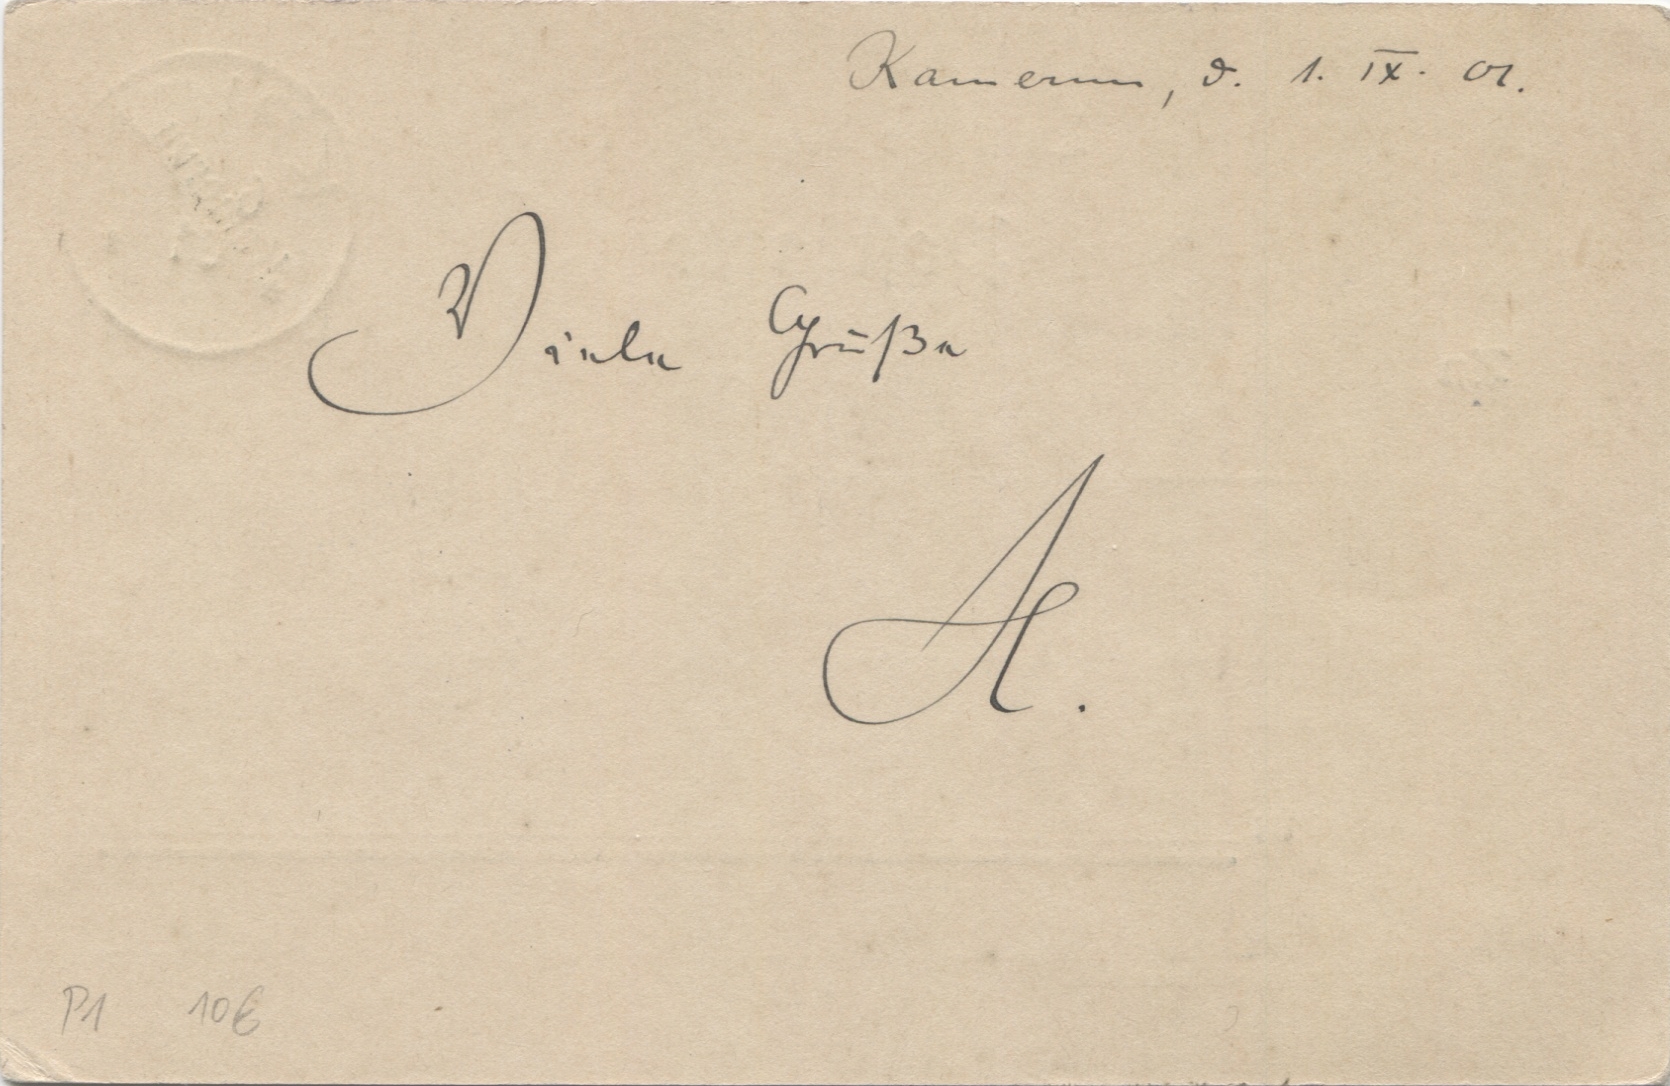 Kamerun, d. 1. IX. 01.
Viele Grüße
A.
P1 10€